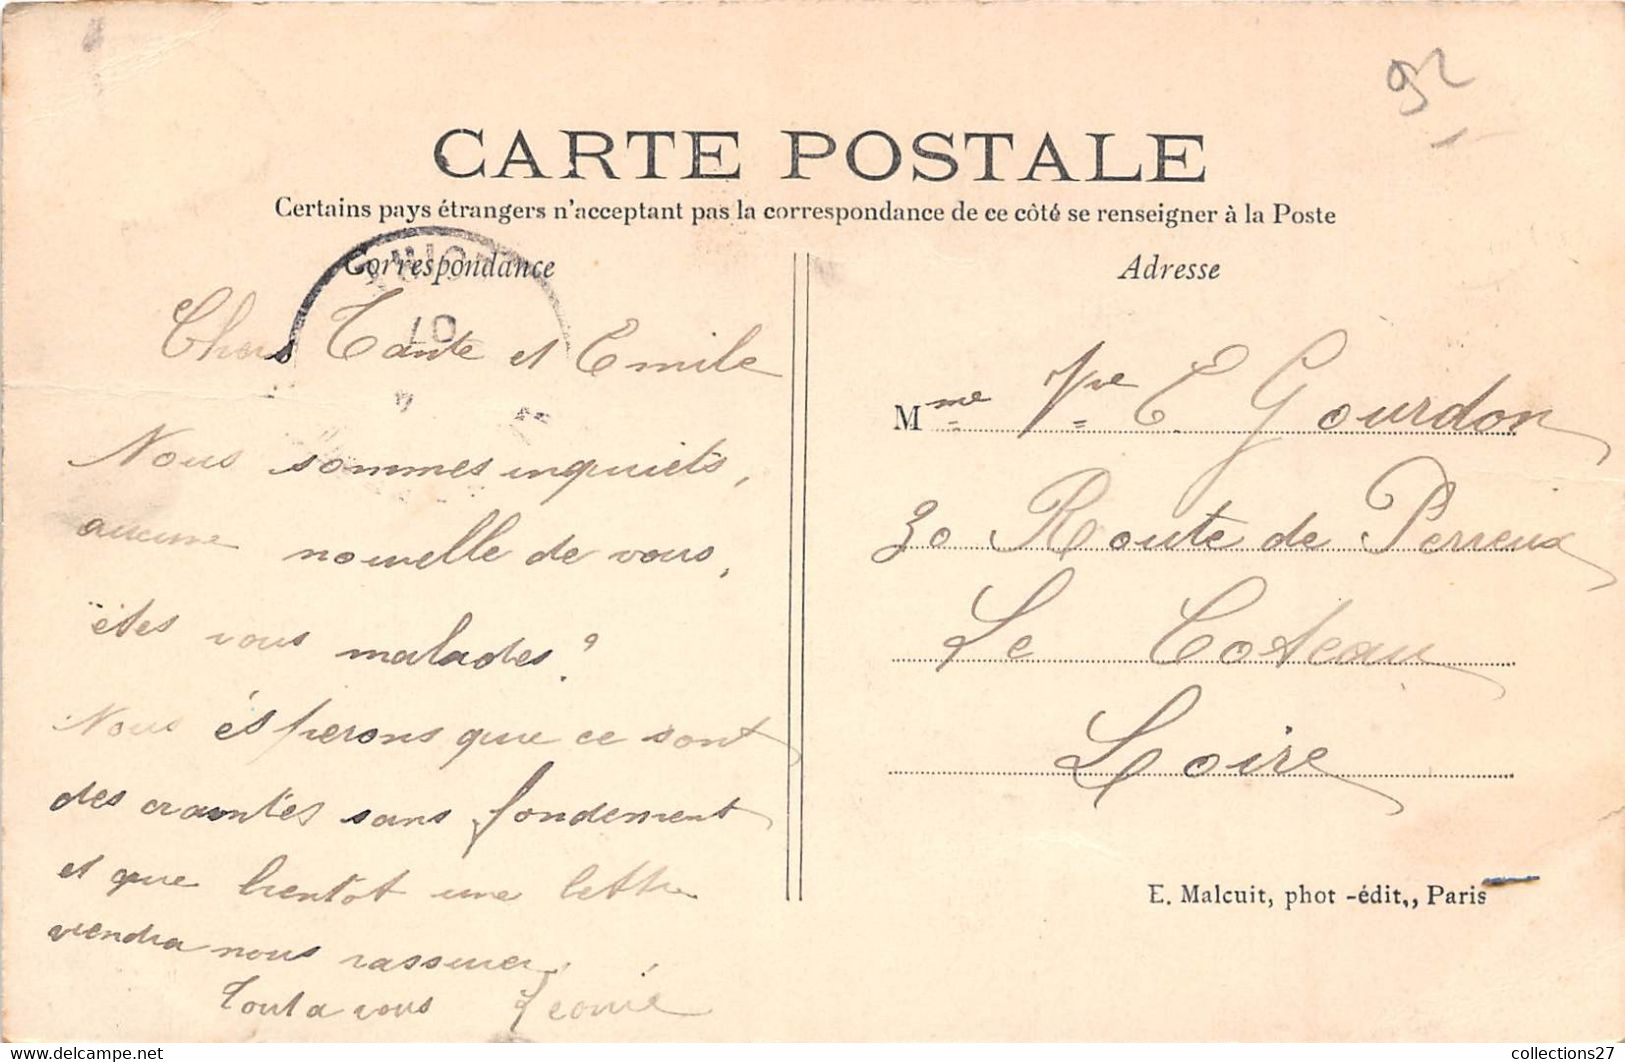 92
CARTE POSTALE
Certains pays étrangers n'acceptant pas la correspondance de ce côté se renseigner à la Poste
Correspondance
Chers Tante et Emile
Nous sommes inquiets,
aucune nouvelle de vous,
êtes vous malades ?
Nous éspérons que ce sont
des craintes sans fondement
et que bientot une lettre
viendra nous rassurer.
Tout a vous Léonie
07
Adresse
Mme Vve E. Gourdon
30 Route de Perreux
Le Coteau
Loire
E. Malcuit, phot -édit., Paris
collections27